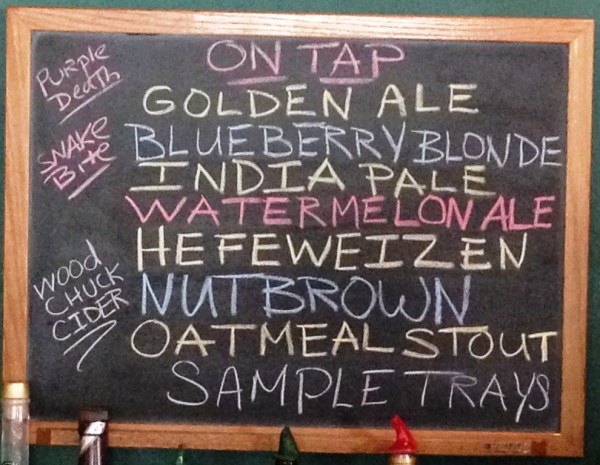 ON TAP
GOLDEN ALE
BLUEBERRY BLONDE
INDIA PALE
WATERMELON ALE
HEFEWEIZEN
NUTBROWN
OATMEAL STOUT
SAMPLE TRAYS
PURPLE
DEATH
SNAKE
BITE
WOOD
CHUCK
CIDER